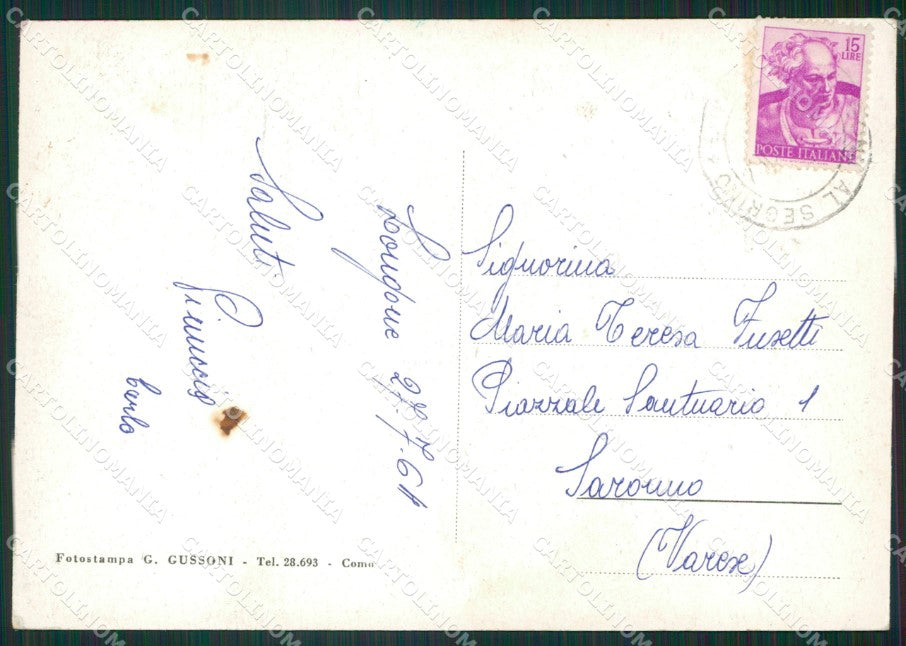 Saluti
Pinuccia
Carlo
Longone 27.7.61
Fotostampa G. GUSSONI - Tel. 28.693 - Como
15
LIRE
POSTE ITALIANE
AL SEGRINO
Signorina
Maria Teresa Fusetti
Piazzale Santuario 1
Saronno
(Varese)
CARTOLINOMANIA